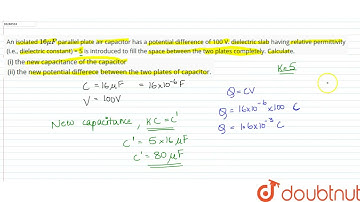 An isolated 16μF parallel plate air capacitor has a potential difference of 100 V. dielectric slab having relative permittivity
(i.e., dielectric constant) = 5 is introduced to fill the space between the two plates completely. Calculate.
(i) the new capacitance of the capacitor
(ii) the new potential differece between the two plates of capacitor.
K=5
C = 16μF = 16x10⁻⁶F
V = 100V
New capacitance, KC=C'
C' = 5x16μF
C' = 80μF
Q=CV
Q = 16x10⁻⁶x100 C
Q = 1.6x10⁻³ C
doubtnut